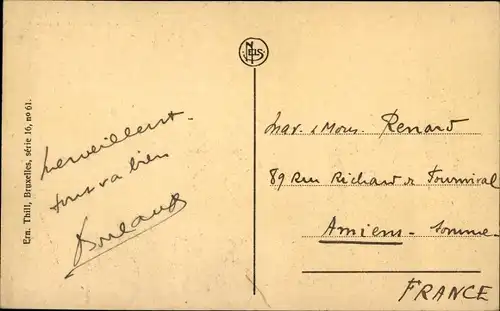 Ern. Thill, Bruxelles, série 16, no 61.
NELS
Merveilleux
tout va bien
Mons. Renard
89 Rue Richard de Fournival
Amiens - Somme -
FRANCE